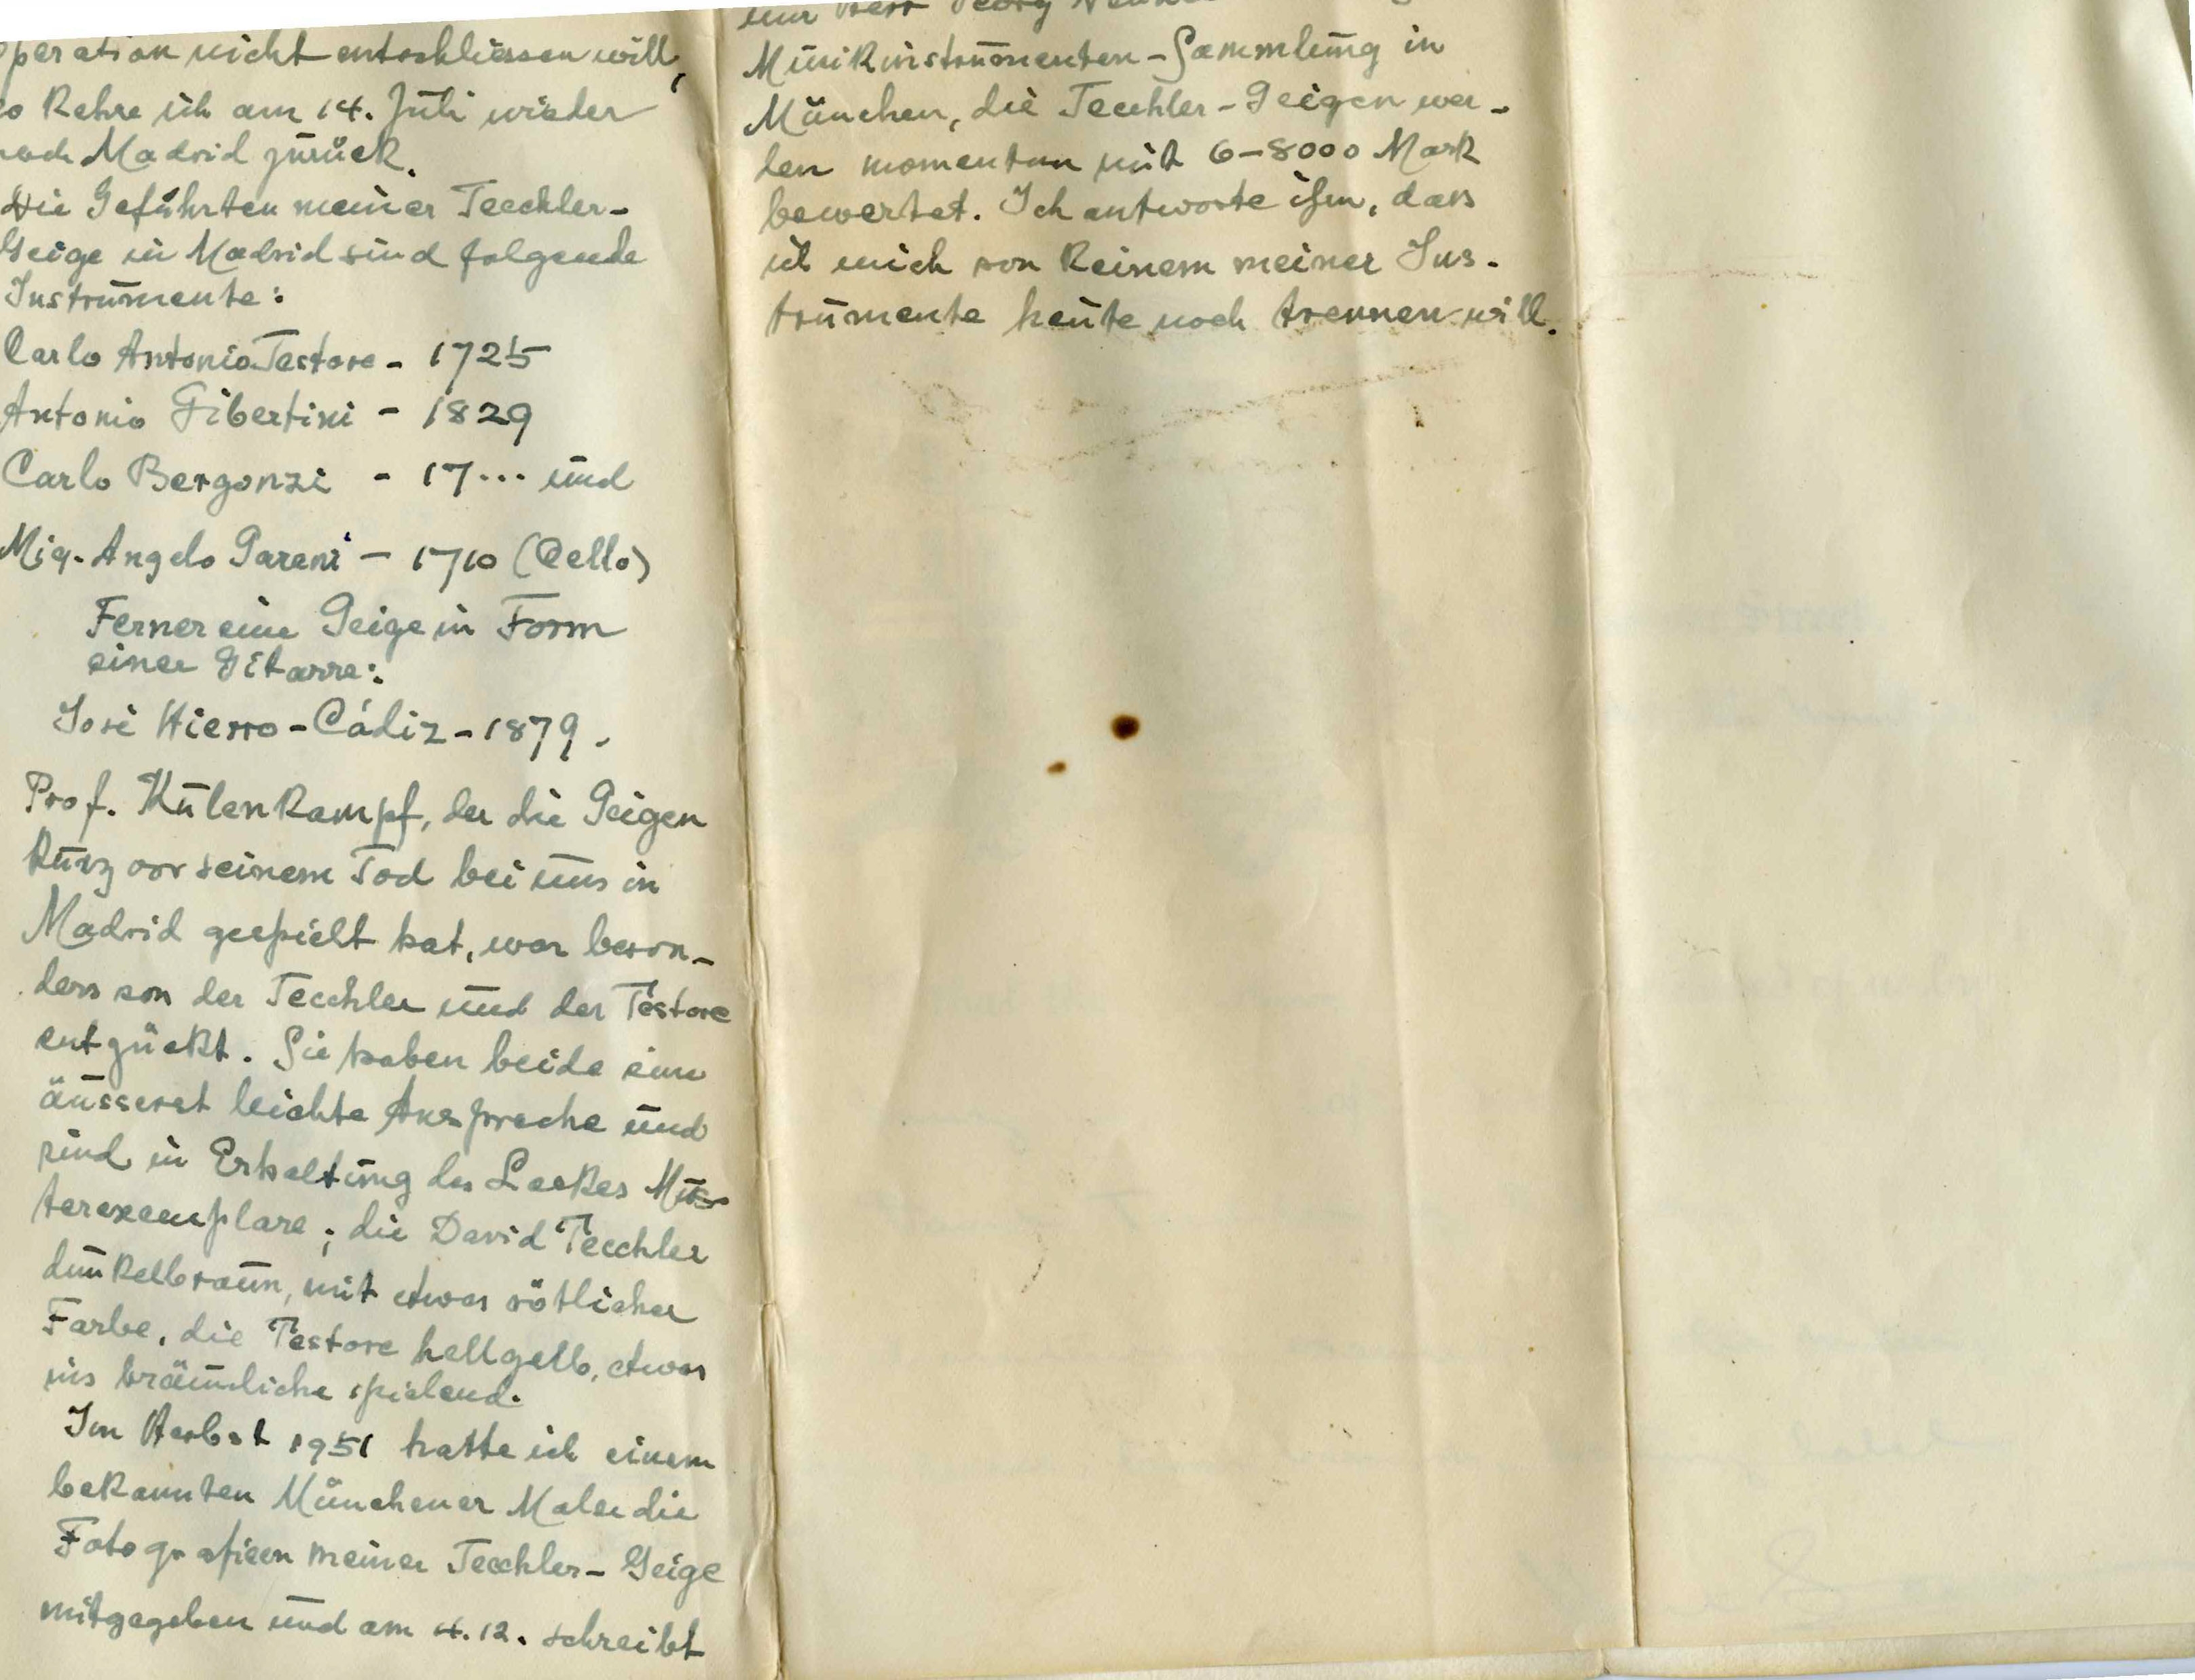 peration nicht entschliessen will,
so kehre ich am 14. Juli wieder
nach Madrid zurück.
Die Gefährten meiner Tecchler-
Geige in Madrid sind folgende
Instrumente:
Carlo Antonio Testore - 1725
Antonio Gibertini - 1829
Carlo Bergonzi - 17... und
Mig. Angelo Garani - 1710 (Cello)
Ferner eine Geige in Form
einer Gitarre:
José Hierro - Cádiz - 1879.
Prof. Kulenkampf, der die Geigen
kurz vor seinem Tod bei uns in
Madrid gespielt hat, war beson-
ders von der Tecchler und der Testore
entzückt. Sie haben beide eine
äusserst leichte Ansprache und
sind in Erhaltung des Lackes Mus-
terexemplare; die David Tecchler
dunkelbraun, mit etwas rötlicher
Farbe, die Testore hellgelb, etwas
ins bräunliche spielend.
Im Herbst 1951 hatte ich einem
bekannten Münchener Maler die
Fotografieen meiner Tecchler-Geige
mitgegeben und am 4.12. schreibt
mir Herr Georg
Musikinstrumenten-Sammlung in
München, die Tecchler-Geigen wer-
den momentan mit 6-8000 Mark
bewertet. Ich antworte ihm, dass
ich mich von keinem meiner Ins-
trumente heute noch trennen will.